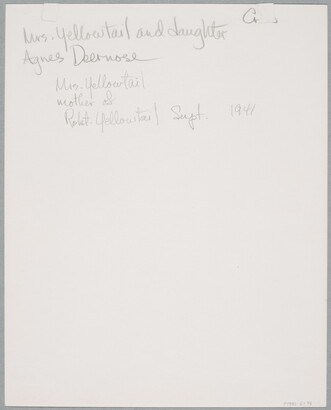 Mrs. Yellowtail and daughter
Agnes Deernose
Mrs. Yellowtail
mother of
Robt. Yellowtail Supt. 1941